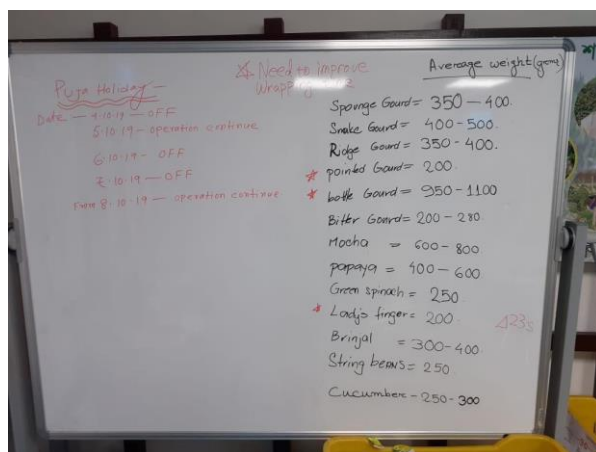 Puja Holiday -
Date - 4.10.19 - OFF
5.10.19 - operation continue
6.10.19 - OFF
7.10.19 - OFF
From 8.10.19 - operation continue
Need to improve
Wrapping
Average weight (gm)
Sponge Gourd = 350 - 400.
Snake Gourd = 400 - 500.
Ridge Gourd = 350 - 400.
pointed Gourd = 200.
bottle Gourd = 950 - 1100
Bitter Gourd = 200 - 280.
Mocha = 600 - 800
papaya = 400 - 600.
Green spinach = 250
Lady's finger = 200.
Brinjal = 300 - 400.
String beans = 250
Cucumber - 250 - 300